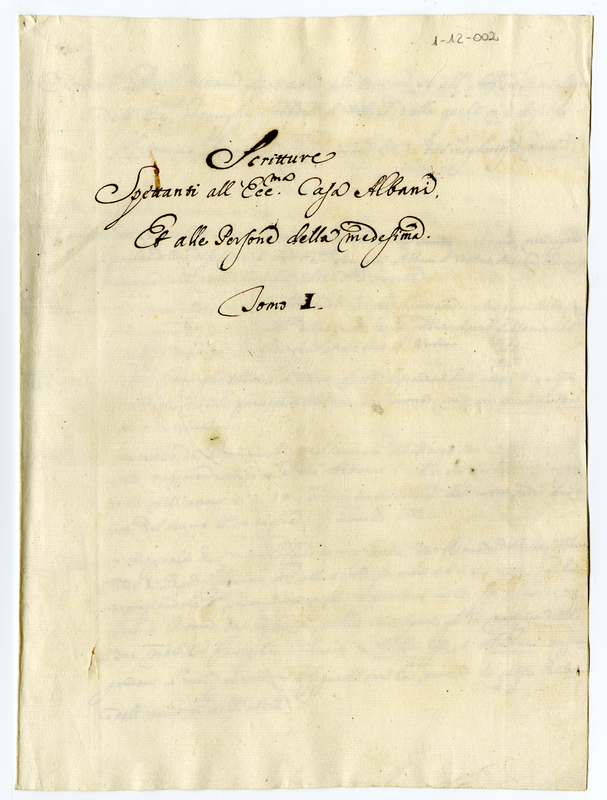 1-12-002
Scritture
Spettanti all'Ecc.ma Casa Albani,
Et alle Persone della medesima.
Tomo I.